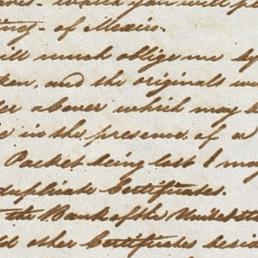 which you will p
of Mexico.
will much oblige me by
and the originals w
above which may b
in the presence of a
Packet being lost I may
duplicate Certificates.
the Bank of the United Sta
other Certificates besid